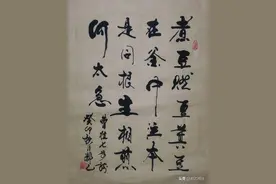 煮豆燃豆萁豆
在釜中泣本
是同根生相煎
何太急
曹植七步詩
癸卯